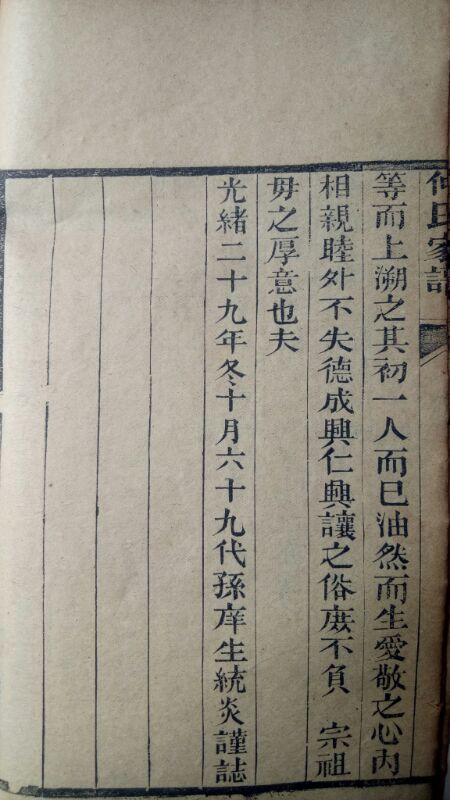 仲氏家譜
等而上溯之其初一人而已油然而生愛敬之心內
相親睦外不失德成興仁興讓之俗庶不負　宗祖
毋之厚意也夫
光緒二十九年冬十月六十九代孫庠生統炎謹誌